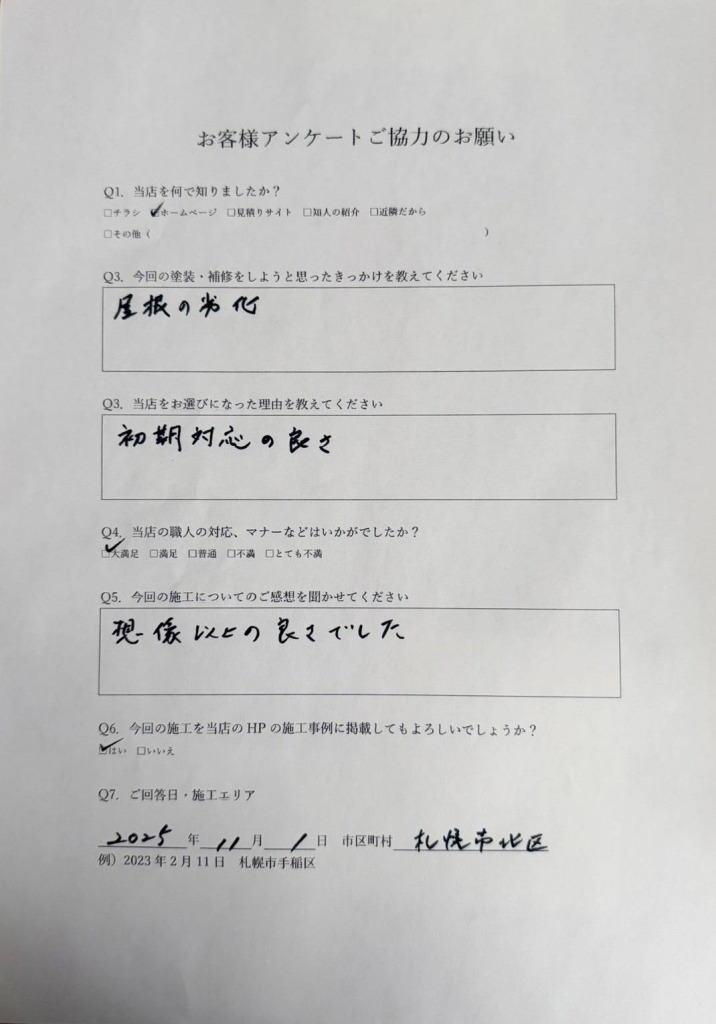 お客様アンケートご協力のお願い
Q1．当店を何で知りましたか？
□チラシ ☑ホームページ □見積りサイト □知人の紹介 □近隣だから
□その他（ ）
Q3．今回の塗装・補修をしようと思ったきっかけを教えてください
屋根の劣化
Q3．当店をお選びになった理由を教えてください
初期対応の良さ
Q4．当店の職人の対応、マナーなどはいかがでしたか？
☑大満足 □満足 □普通 □不満 □とても不満
Q5．今回の施工についてのご感想を聞かせてください
想像以上の良さでした
Q6．今回の施工を当店のHPの施工事例に掲載してもよろしいでしょうか？
☑はい □いいえ
Q7．ご回答日・施工エリア
2025年11月1日 市区町村 札幌市北区
例）2023年2月11日 札幌市手稲区